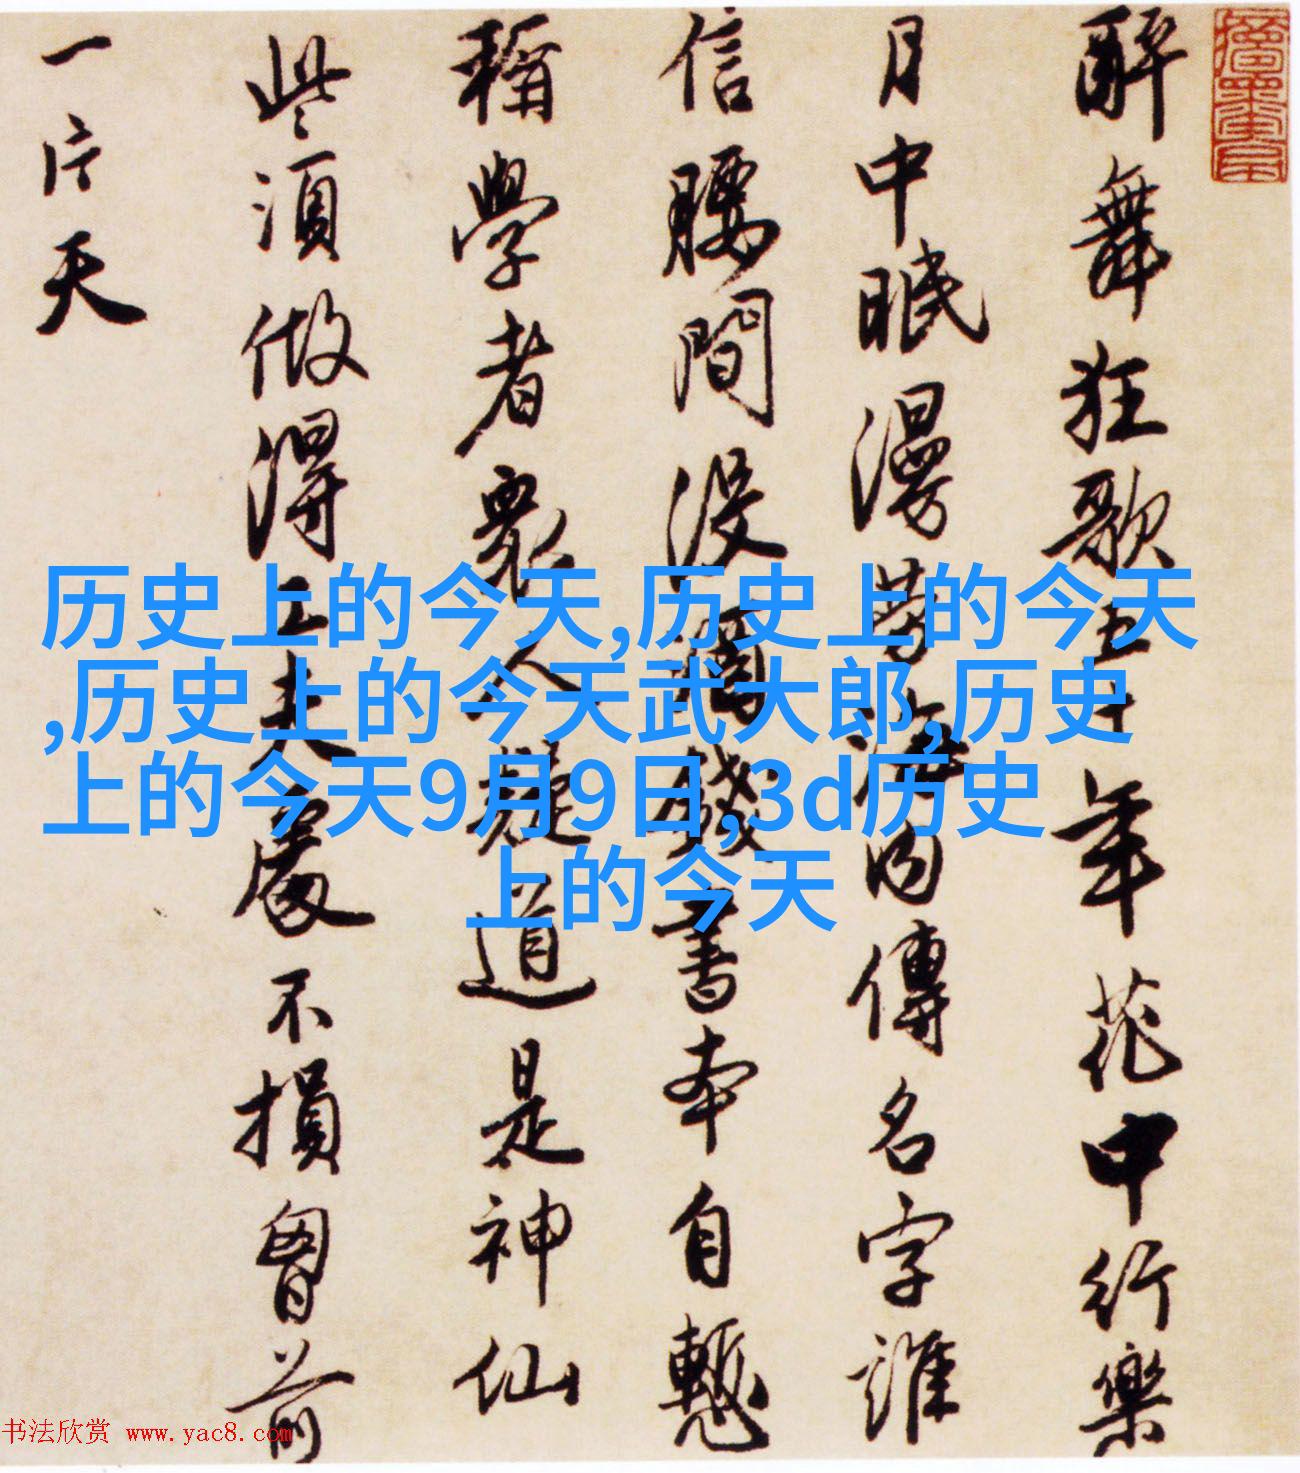 酔舞狂歌五十年花中行樂
月中眠漫勞海内傳名字誰
信腰間沒酒錢書本自慙
稱學者眾人疑道是神仙
些須做得工夫處不損胷前
一片天
历史上的今天,历史上的今天
,历史上的今天武大郎,历史
上的今天9月9日,3d历史
上的今天
书法欣赏 www.yac8.com